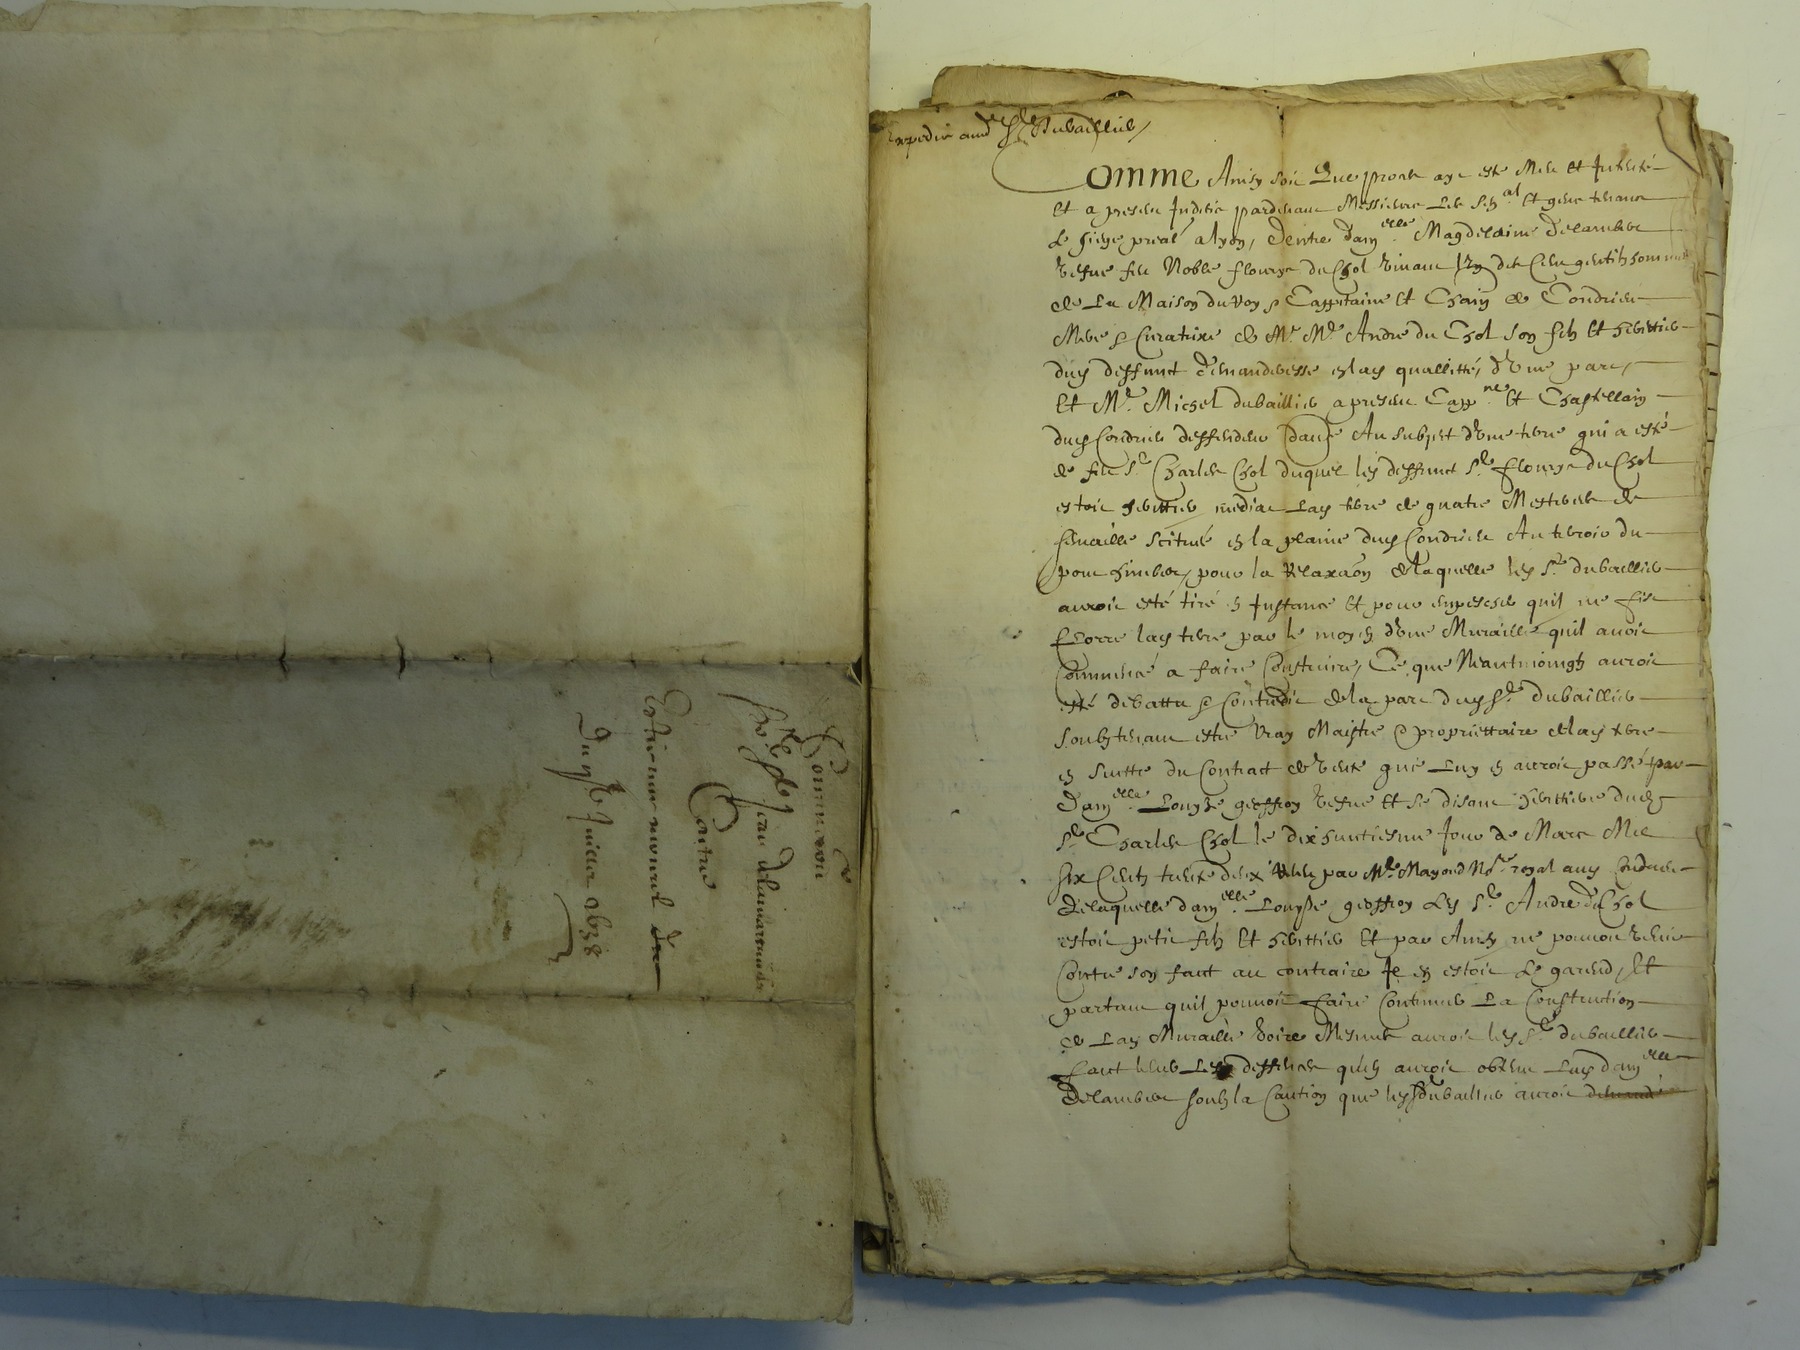 Sommation
Jean
Contre
Estienne
Du juillet 1638
Expedié aud Sr Dubaillier
Comme Ainsy soit Que proces aye esté Meu et Intenté
et a present Indecis pardevant Messieurs Les et gens tenant
Le siege preal a lyon, Dentre damelle Magdelaine Delambert
vefve feu Noble fleurye du Chol vivant l'un des Cent gentilzhommes
de La Maison du Roy & Cappitaine et Chain de Condrieu
Mere & Curatrixe de Mr Me André du Chol son filz et heritier
dud deffunct demanderesse en lad quallitté, d'vne part,
et Mr Michel dubaillier a present Cappne et Chastellain
dud Condrieu deffendeur dautre Au subject d'vne terre qui a esté
de feu Sr Charles Chol duquel led deffunct Sr fleurye du Chol
estoit heritier mediat Lad terre de quatre Mesteries de
semaille scitueé en la plaine dud Condrieu Au terroir du
pour la Relaxaon de laquelle led Sr dubaillier
auroit esté tiré en Instance et pour empescher quil ne fist
Clorre lad terre par le moyen d'vne Muraille quil avoit
Commencé a faire Construire, Ce que Neantmoingtz auroit
esté debattu & Contredit de la part dud Sr dubaillier
soubztenant estre vray Maistre & propriettaire de lad terre
en suitte du Contract de vente que Luy en auroit passé par
Damelle Louyse geoffroy vefve et se disant herittiere dud
Sr Charles Chol le dixhuictiesme Jour de Mars Mil
six Centz trente deux receu par Me Mayoud Nore royal aud Condrieu
De laquelle damelle Louyse geoffroy Led Sr André du Chol
estoit petit filz et herittier et par Ainsy ne pouvoit venir
Contre son faict au contraire Il en estoit Le garend, Et
partant quil pouvoit faire Continuer La Construction
de Lad Muraille voire Mesmes auroit led Sr dubaillier
faict lever Les deffences qu'en auroit obtenu Lad damelle
Delambert soubz la Caution que led Sr dubaillier auroit demandé